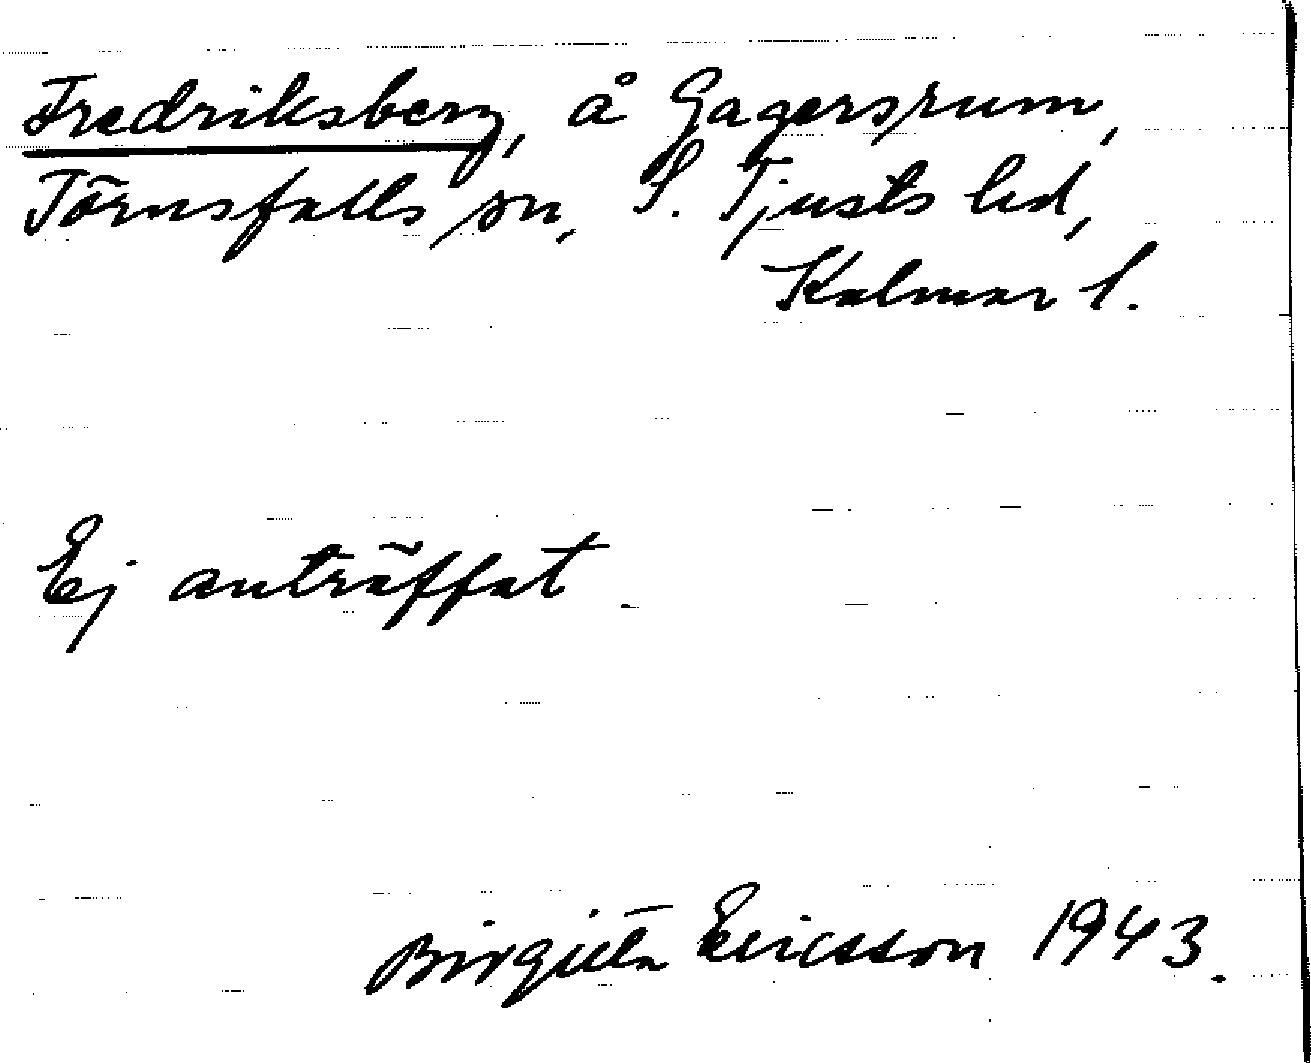 Fredriksberg, å Gagersrum,
Törnsfalls sn, S. Tjusts hd,
Kalmar l.
Ej anträffat
Birgitta Ericsson 1943.